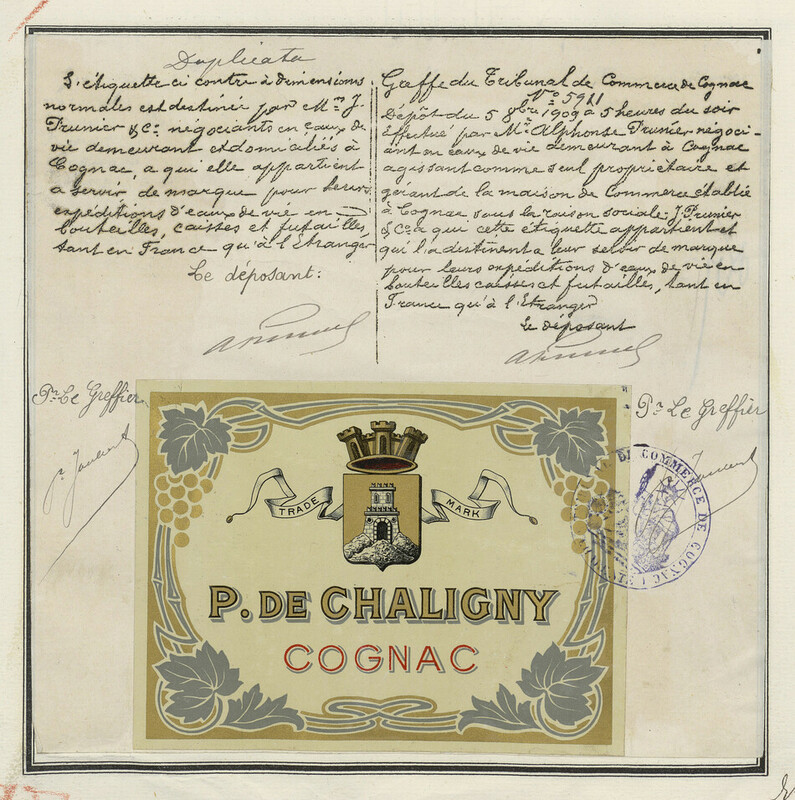 Duplicata
L'étiquette ci contre à dimensions
normales est destinée par Mrs J.
Prunier & Co. négociants en eaux de
vie demeurant et domiciliés à
Cognac, a qui elle appartient
a servir de marque pour leurs
expéditions d'eaux de vie en
bouteilles, caisses et futailles,
tant en France qu'à l'Etranger
Le déposant:
Greffe du Tribunal de Commerce de Cognac
No 5911
Dépôt du 5 8bre 1909 a 5 heures du soir
Effectué par Mr. Alphonse Prunier négoci-
ant en eaux de vie demeurant à Cognac
agissant comme seul propriétaire et
gérant de la maison de Commerce établie
à Cognac sous la raison sociale: J. Prunier
& Co. a qui cette étiquette appartient et
qui l'a destinent a leur servir de marque
pour leurs expéditions d'eaux de vie en
bouteilles caisses et futailles, tant en
France qu'à l'Etranger
Le déposant
Pr. Le Greffier
Pr. Le Greffier
TRADE MARK
P. DE CHALIGNY
COGNAC
DE COMMERCE DE COGNAC